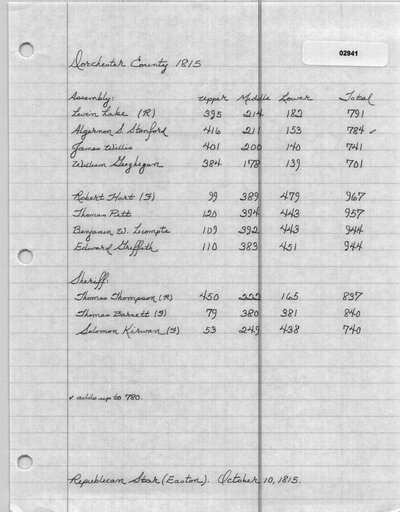 02941
Dorchester County 1815
Assembly: Upper Middle Lower Total
Levin Lake (R) 395 214 182 791
Algernon S. Stanford 416 211 153 784 ✓
James Willis 401 200 140 741
William Geoghegan 384 178 139 701
Robert Hart (F) 99 389 479 967
Thomas Pitt 120 394 443 957
Benjamin W. Lecompte 109 392 443 944
Edward Griffith 110 383 451 944
Sheriff:
Thomas Thompson (R) 450 222 165 837
Thomas Barnett (F) 79 380 381 840
Solomon Kirwan (F) 53 249 438 740
✓ adds up to 780.
Republican Star (Easton). October 10, 1815.